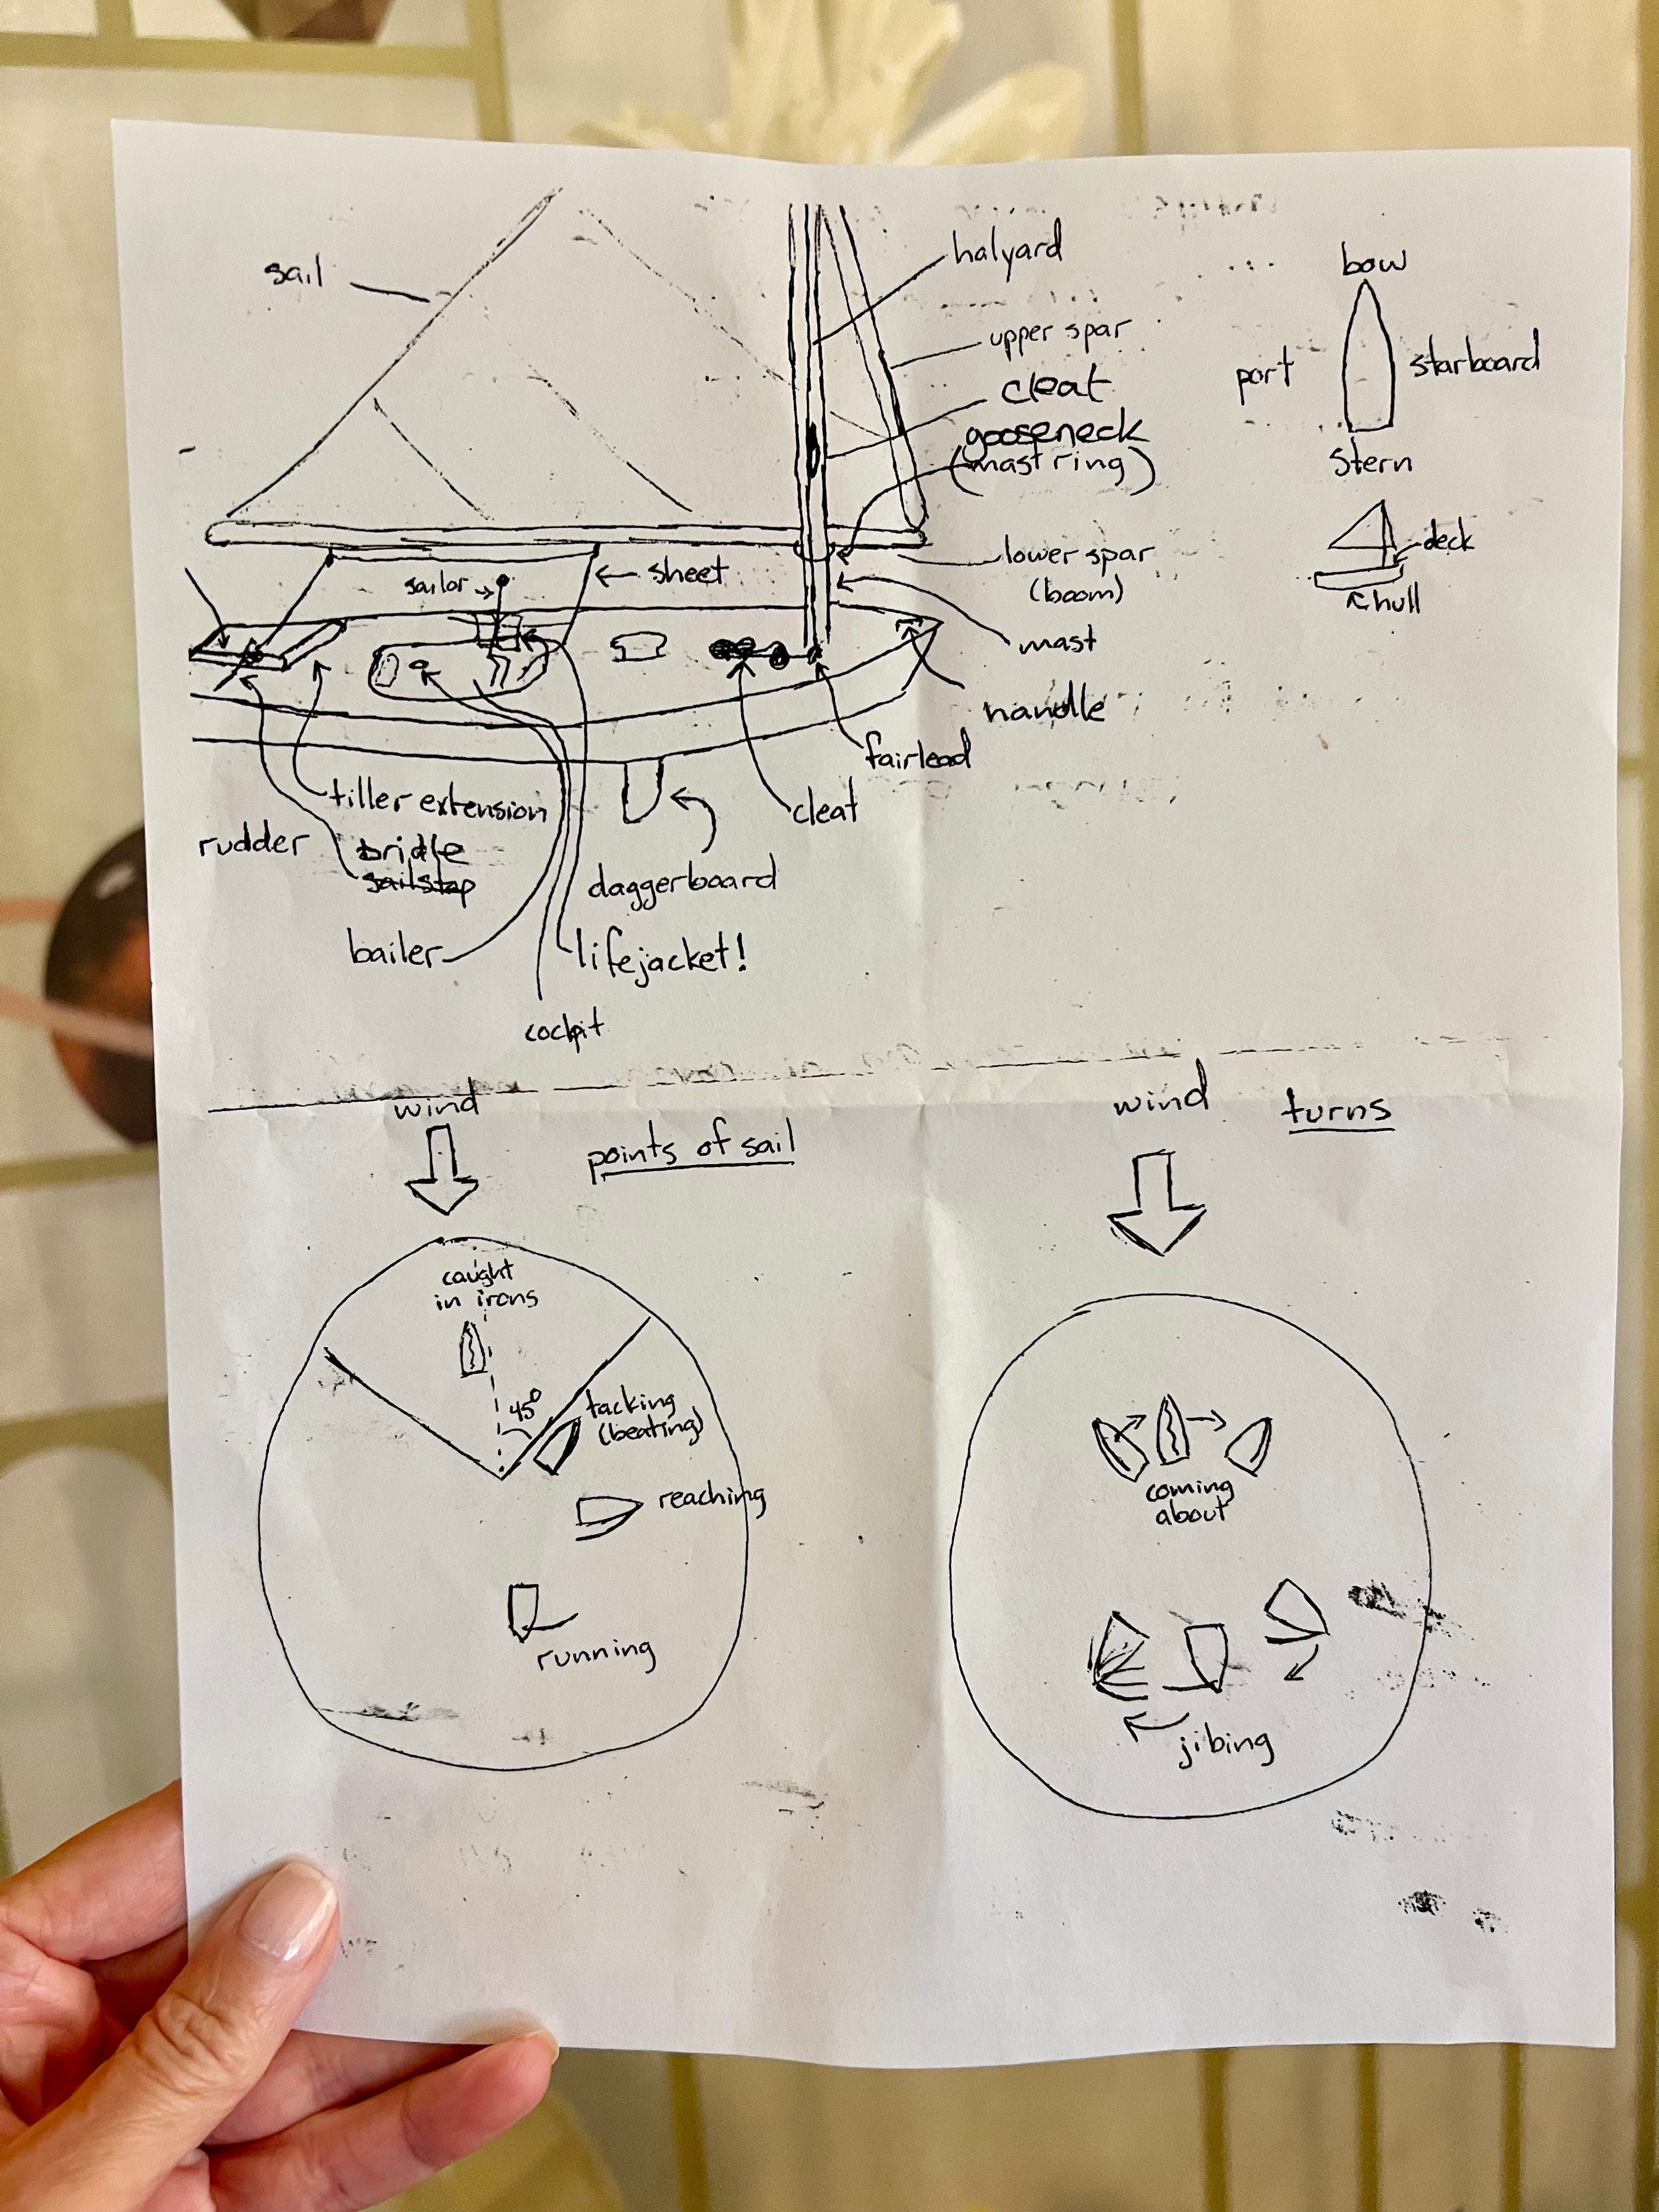 sail
halyard
upper spar
cleat
gooseneck
(mast ring)
lower spar
(boom)
mast
sheet
sailor
handle
fairlead
cleat
tiller extension
rudder
bridle
sailstop
daggerboard
bailer
lifejacket!
cockpit
bow
port
starboard
stern
deck
hull
wind
points of sail
caught
in irons
45°
tacking
(beating)
reaching
running
wind
turns
coming
about
jibing